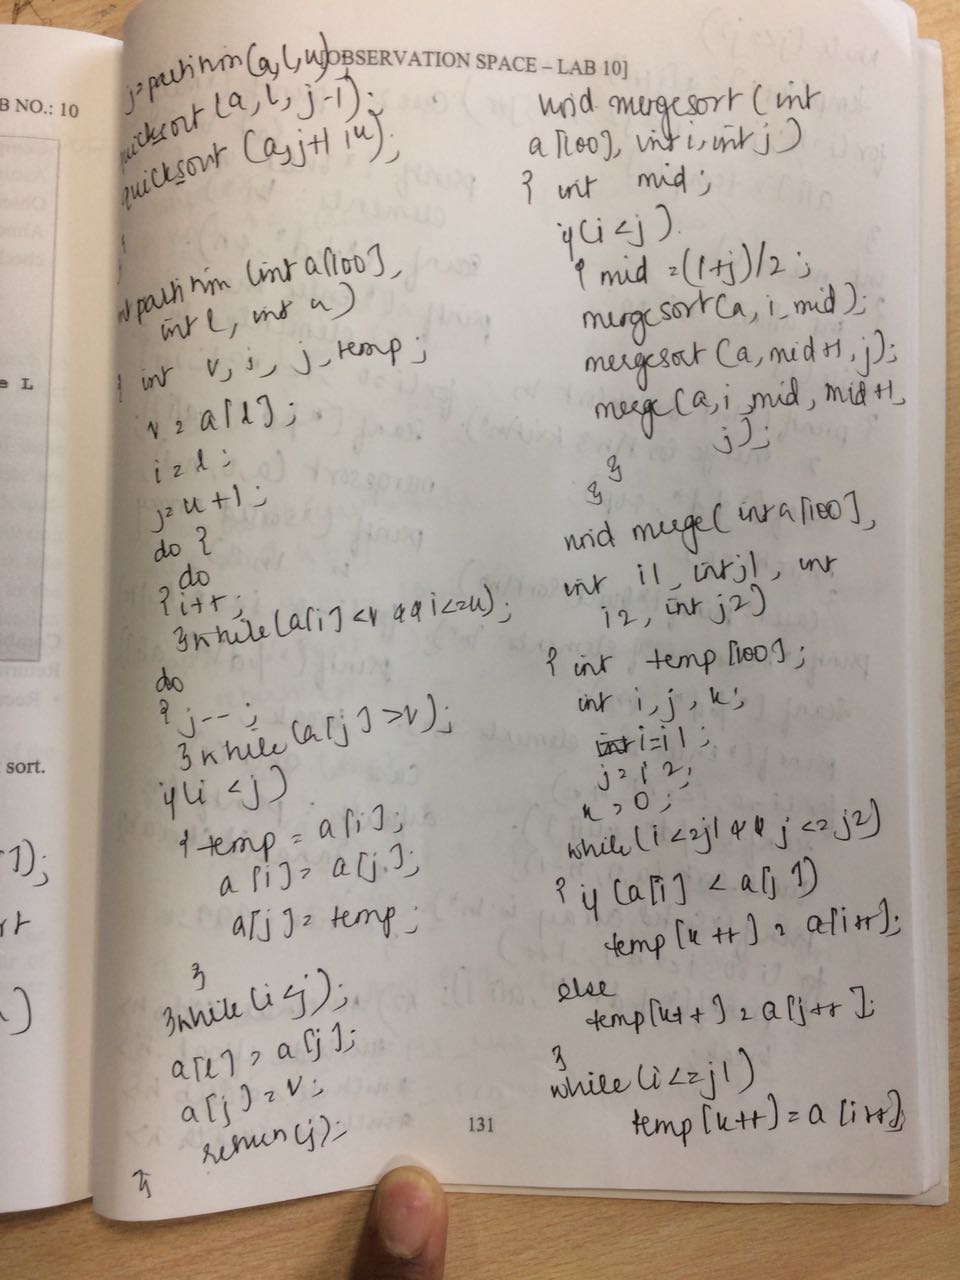 B NO.: 10
e L
sort.
]);
[OBSERVATION SPACE – LAB 10]
j=partition(a,l,u);
quicksort (a, l, j-1);
quicksort (a, j+1, u);
}
int partition (int a[100],
int l, int u)
{ int v, i, j, temp;
v = a[l];
i = l;
j = u+1;
do {
do
{ i++;
}while(a[i]<v && i<=u);
do
{ j--;
}while(a[j]>v);
if(i<j)
{ temp = a[i];
a[i] = a[j];
a[j] = temp;
}
}while(i<j);
a[l] = a[j];
a[j] = v;
return(j);
}
void mergesort (int
a[100], int i, int j)
{ int mid;
if(i<j)
{ mid =(i+j)/2;
mergesort(a, i, mid);
mergesort (a, mid+1, j);
merge(a, i, mid, mid+1,
j);
}
}
void merge(int a[100],
int i1, int j1, int
i2, int j2)
{ int temp[100];
int i, j, k;
i=i1;
j=i2;
k=0;
while(i<=j1 && j<=j2)
{ if (a[i] < a[j])
temp[k++] = a[i++];
else
temp[k++] = a[j++];
}
while(i<=j1)
temp[k++] = a[i++];
131